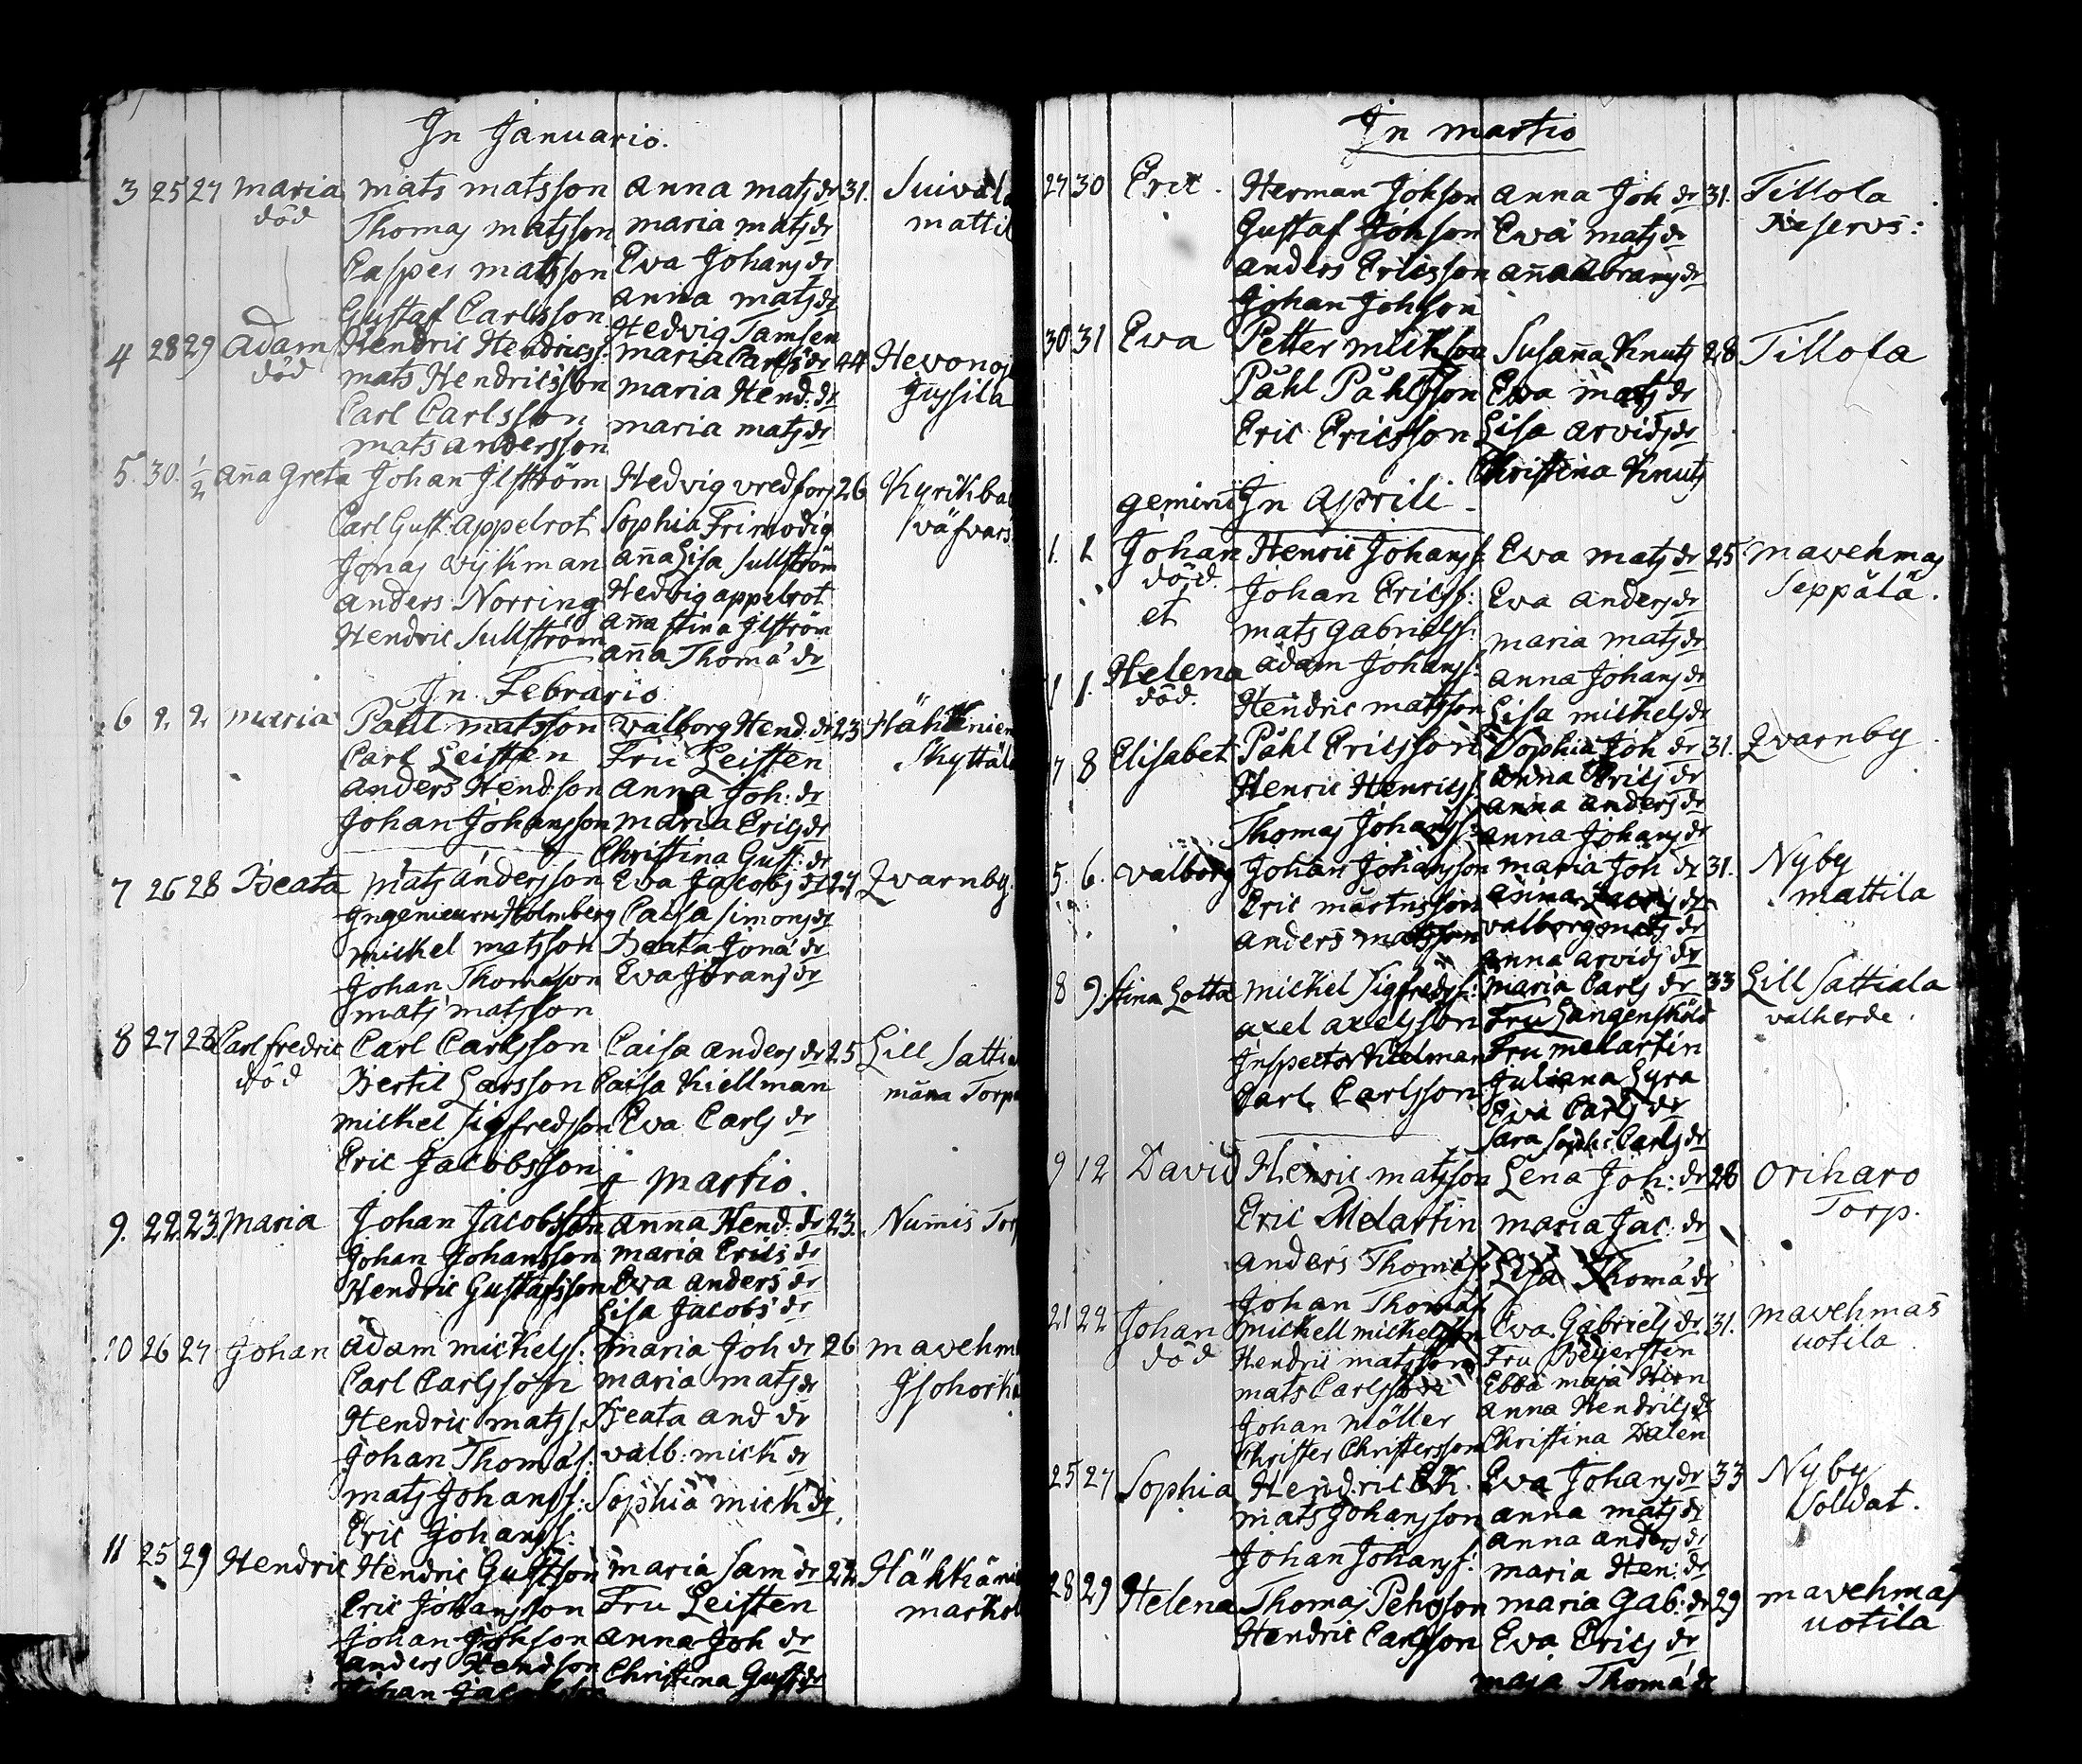 In Januario.
3 25 27 maria mats matsson anna mats dr 31. Suivala
död Thomas matsson maria mats dr mattil
Casper matsson Eva Johans dr
Gustaf Carlsson anna mats dr
Hedvig Tamsen
4 28 29 Adam Hendric Hendricss: maria Carls dr 44 Hevonoj
död mats Hendricsson maria Hend: dr Jussila
Carl Carlsson maria mats dr
mats andersson
5. 30. 1/2 aña greta Johan Ilström Hedvig vredfors 26 Kyrikba
Carl Gust: Appelrot Sophia Frimodig väfvars
Jonas Wijkman aña Lisa Sullström
anders Norring Hedvig appelrot
Hendric Sullström aña stina Ilström
aña Thoma dr
In Febrario
6 2. 2. maria Påhl matsson valborg Hend: dr 23 Häkkänien
Carl Leisten Fru Leisten Skyttäla
anders Hendson anna Joh: dr
Johan Johansson maria Erics dr
Christina Gust: dr
7 26 28 Beata mats andersson Eva Jacobs dr 27. Qvarnby.
Ingenieurn Holmberg Caisa simons dr
mickel matsson Beata Jona dr
Johan Thomasson Eva Jörans dr
mats matsson
8 27 28 Carl fredric Carl Carlsson Caisa anders dr 25 Lill Sattia
död Bertil Larsson Caisa Kiellman måna Torp
mickel sigfredsson Eva Carls dr
Eric Jacobsson
I martio.
9. 22. 23. Maria Johan Jacobsson anna Hend: dr 23. Numis Tor
Johan Johansson maria Erics dr
Hendric Gustafsson Eva anders dr
Lisa Jacobs dr
10 26 27 Johan adam mickelss: maria Joh dr 26 mavehm
Carl Carlsson maria mats dr Isohork
Hendric matss: Beata and dr
Johan Thomas: valb: mick dr
mats Johanss: Sophia mick dr
Eric Johanss:
11 25 29 Hendric Hendric Gustsson maria Sam dr 22. Häkkäni
Eric Johansson Fru Leisten markol
Johan Johson anna Joh dr
anders Hendson Christina Gust dr
Johan Jacobsson
In martio
27 30 Eric. Herman Johson anna Joh dr 31. Tillola
Gustaf Johson Ewa mats dr Reservs:
anders Ericsson aña Abrams dr
Johan Johson
30 31 Ewa Petter mickson Susaña Knuts 28 Tillola
Påhl Påhlsson Ewa mats dr
Eric Ericsson Lisa arvids dr
Christina Knuts
gemini In Aprili
1. 2 Johan Henric Johanss: Ewa mats dr 25 mavehmas
död. Johan Ericss: Eva anders dr Seppälä.
et mats gabrielss: maria mats dr
1 1. Helena adam Johanss: anna Johans dr
död. Hendric matsson Lisa michels dr
7 8 Elisabet Påhl Ericsson Sophia Joh dr 31. Qvarnby
Henric Henricss: anna Erics dr
anna anders dr
Thomas Johanss: anna Johans dr
5. 6. valborg Johan Johansson maria Joh dr 31. Nyby
Eric mårtnsson mattila
anders matsson valborg mats dr
anna arvids dr
8 9. stina Lotta mickel Sigfredss: maria Carls dr 33 Lill Sattiala
axel axelsson Fru Langenskiöld valherde.
Inspector Kiellman Fru melartin
Carl Carlsson Juliana Lyra
Eva Carls dr
Sara Soph: Carls dr
9 12 David Henric matsson Lena Joh: dr 28 Oriharo
Eric Melartin maria Jac: dr Torp.
anders Thomass: Lisa Thoma dr
Johan Thomas
21 22 Johan mickell mickelsson Eva Gabriels dr 31. mavehmas
död Hendric matsson Fru Beijersten uotila
mats Carlsson Ebba maja Hirn
Johan Möller anna Hendrics dr
Christer Christersson Christina Dalen
25 27 Sophia Hendric Ek. Eva Johans dr 33 Nyby
mats Johansson anna mats dr Soldat.
anna anders dr
Johan Johanss: maria Hen: dr
28 29 Helena Thomas Pehrsson maria Gab: dr 29 mavehmas
Hendric Carlsson Eva Erics dr uotila
maja Thoma dr